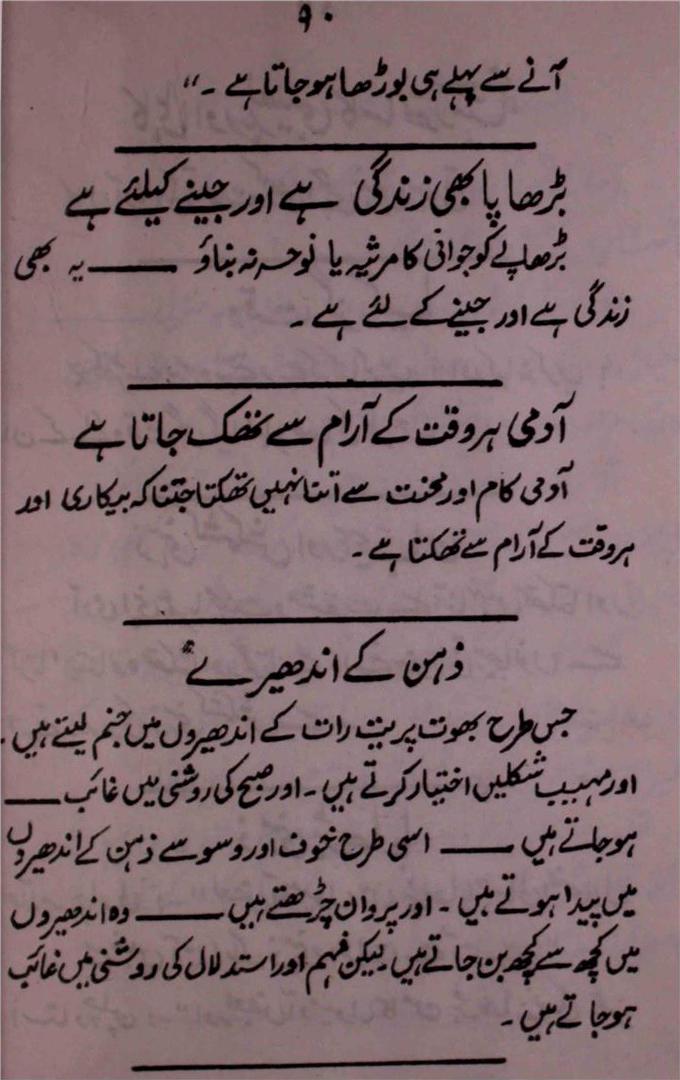 ۹۰
آنے سے پہلے ہی بوڑھا ہو جاتا ہے ۔"
بڑھاپا بھی زندگی ہے اور جینے کیلئے ہے
بڑھاپے کو جوانی کا مرثیہ یا نوحہ نہ بناؤ ـــــــ یہ بھی
زندگی ہے اور جینے کے لئے ہے ۔
آدمی ہر وقت کے آرام سے تھک جاتا ہے
آدمی کام اور محنت سے اتنا نہیں تھکتا جتنا کہ بیکاری اور
ہر وقت کے آرام سے تھکتا ہے ۔
ذہن کے اندھیرے
جس طرح بھوت پریت رات کے اندھیروں میں جنم لیتے ہیں ۔
اور مہیب شکلیں اختیار کرتے ہیں ۔ اور صبح کی روشنی میں غائب ـــــــ
ہو جاتے ہیں ـــــــ اسی طرح خوف اور وسوسے ذہن کے اندھیروں
میں پیدا ہوتے ہیں ۔ اور پروان چڑھتے ہیں ـــــــ وہ اندھیروں
میں کچھ سے کچھ بن جاتے ہیں لیکن فہم اور استدلال کی روشنی میں غائب
ہو جاتے ہیں ۔